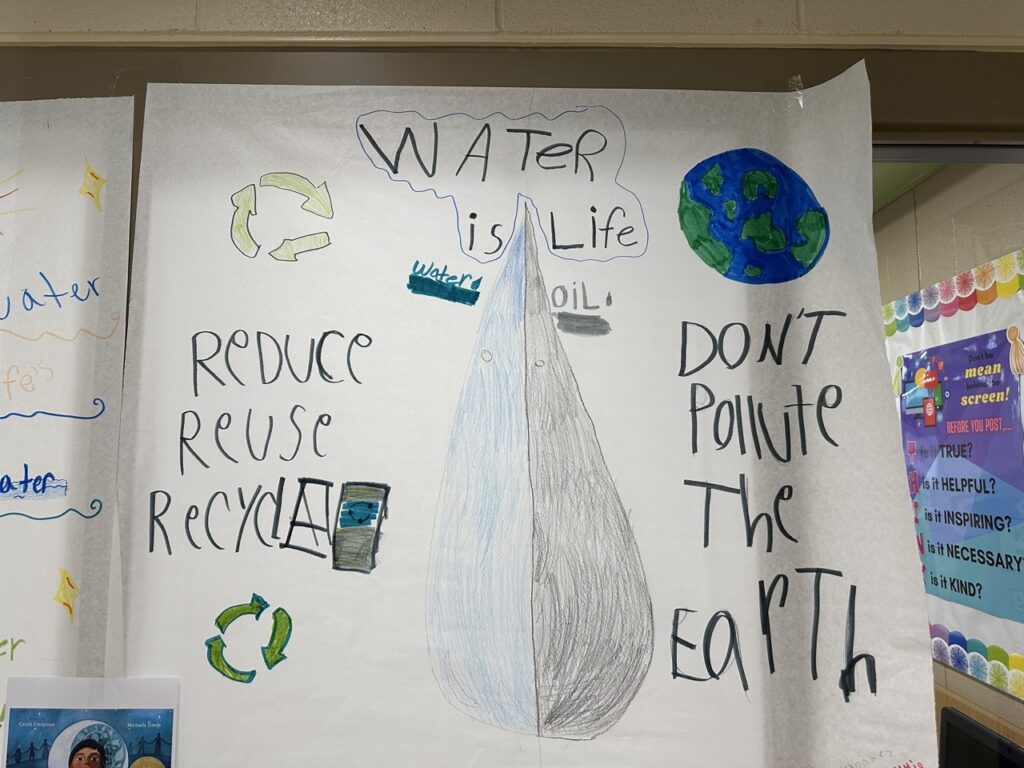 WATeR
is Life
Water
OiL
ReDUCe
ReUSe
RecyclA
DON'T
Pollute
The
EarTh
water
fe's
ater
er
Carole Lindstrom
Michaela Goade
Don't be
mean
behind the
screen!
BEFORE YOU POST,...
T is it TRUE?
H is it HELPFUL?
I is it INSPIRING?
N is it NECESSARY
K is it KIND?